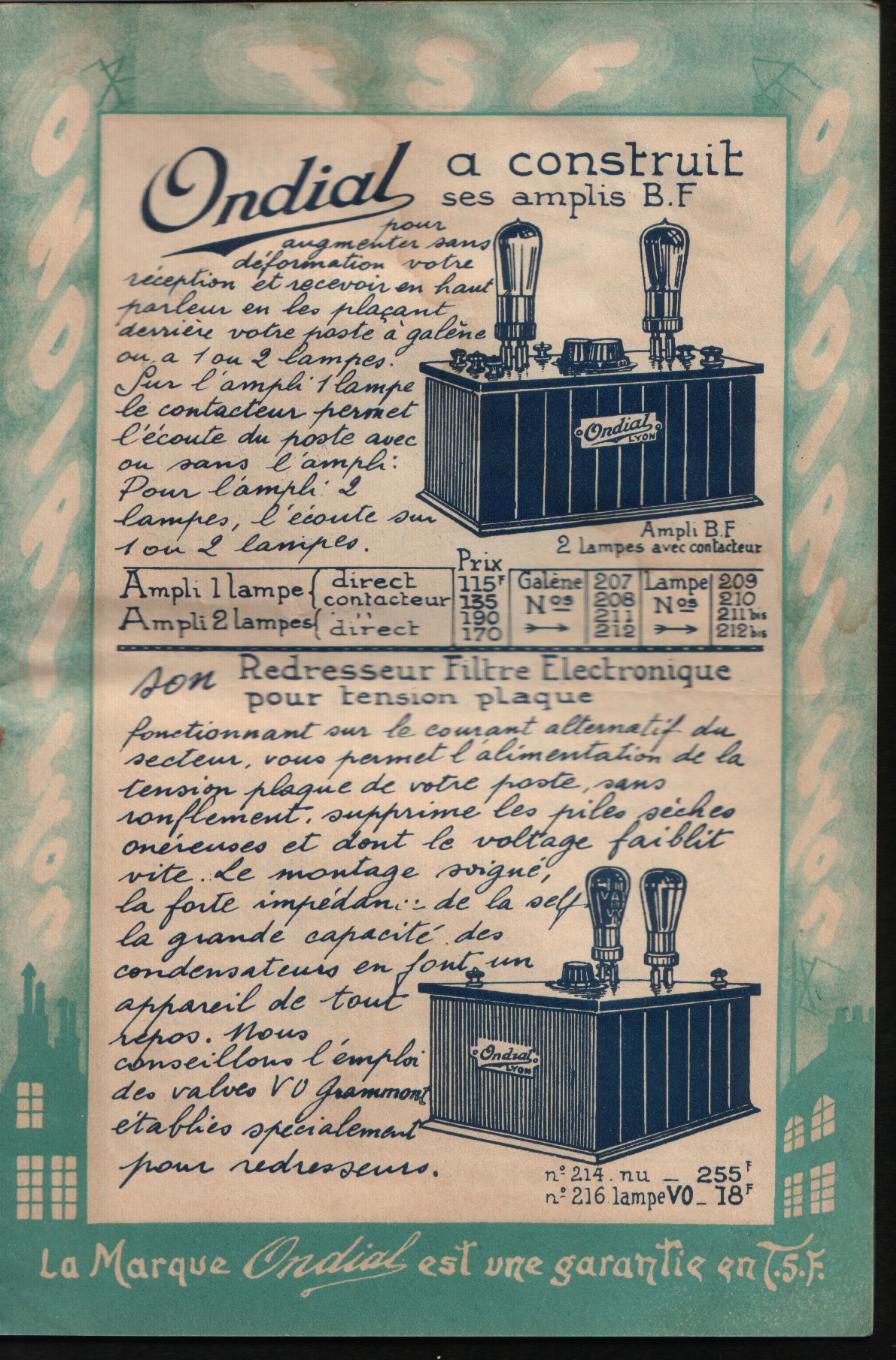 T S F
ONDIAL Lyon
ONDIAL Lyon
Ondial a construit
ses amplis B.F
pour
augmenter sans
déformation votre
réception et recevoir en haut
parleur en les plaçant
derrière votre poste à galène
ou a 1 ou 2 lampes.
Sur l'ampli 1 lampe
le contacteur permet
l'écoute du poste avec
ou sans l'ampli:
Pour l'ampli 2
lampes, l'écoute sur
1 ou 2 lampes.
Ondial
LYON
Ampli B.F
2 Lampes avec contacteur
Prix
Ampli 1 lampe { direct 115F Galène 207 Lampe 209
contacteur 135 Nos 208 Nos 210
Ampli 2 lampes { " 190 211 211 bis
direct 170 212 212 bis
son Redresseur Filtre Electronique
pour tension plaque
fonctionnant sur le courant alternatif du
secteur, vous permet l'alimentation de la
tension plaque de votre poste, sans
ronflement, supprime les piles sèches
onéreuses et dont le voltage faiblit
vite. Le montage soigné,
la forte impédan.. de la self
la grande capacité des
condensateurs en font un
appareil de tout
repos. Nous
conseillons l'émploi
des valves VO Grammont
établies spécialement
pour redresseurs.
Ondial
LYON
n° 214. nu _ 255F
n° 216 lampe VO_ 18F
La Marque Ondial est une garantie en T.S.F.